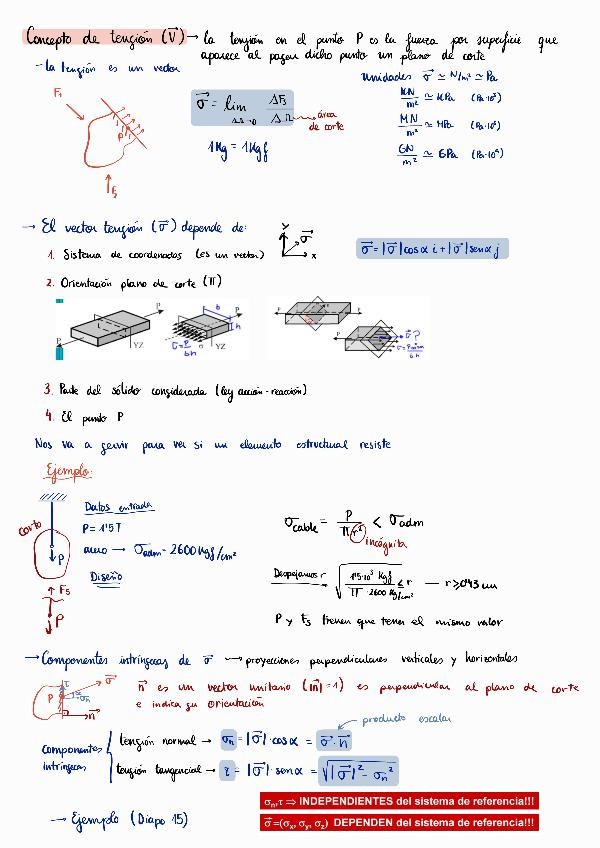 Concepto de tensión (V) → la tensión en el punto P es la fuerza por superficie que
aparece al pasar dicho punto un plano de corte
- La tensión es un vector
Unidades σ⃗ ≃ N/m² ≃ Pa
F₁
P
F₂
σ⃗ = lim ΔF/ΔΩ
ΔΩ→0
área
de corte
1Kg = 1Kgf
KN/m² ≃ KPa (Pa·10³)
MN/m² ≃ MPa (Pa·10⁶)
GN/m² ≃ GPa
→ El vector tensión (σ⃗) depende de:
1. Sistema de coordenadas (es un vector)
y
σ⃗
x
σ⃗ = |σ⃗|cosα i + |σ⃗|senα j
2. Orientación plano de corte (Π)
P
P
YZ
b
P
h
σ = P/bh
YZ
P
P
σ⃗ ?
3. Parte del sólido considerada (ley acción-reacción)
4. El punto P
Nos va a servir para ver si un elemento estructural resiste
Ejemplo:
corto
P
Datos entrada
P = 1'5 T
acero → σadm = 2600 Kgf/cm²
Diseño
σcable = P/Πr² < σadm
incógnita
Despejamos r √(1'5·10³ Kgf / Π·2600 Kgf/cm²) ≤ r — r ≥ 0'43 cm
F₅
P
P y F₅ tienen que tener el mismo valor
→ Componentes intrínsecas de σ⃗ → proyecciones perpendiculares verticales y horizontales
P
τ
σ⃗
σn
n⃗
n⃗ es un vector unitario (|n⃗|=1) es perpendicular al plano de corte
e indica su orientación
producto escalar
componentes
intrínsecas
tensión normal → σn = |σ⃗|·cosα = σ⃗·n⃗
tensión tangencial → τ = |σ⃗|senα = √(|σ⃗|² - σn²)
σn,τ ⇒ INDEPENDIENTES del sistema de referencia!!!
→ Ejemplo (Diapo 15)
σ⃗ =(σx, σy, σz) DEPENDEN del sistema de referencia!!!